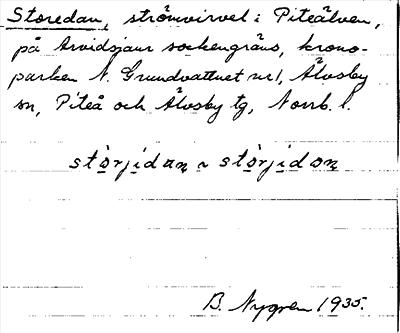 Storedan, strömvirvel i Piteälven,
på Arvidsjaur sockengräns, krono-
parken N. Grundvattnet nr 1, Älvsby
sn, Piteå och Älvsby tg, Norrb. l.
stòrjidan ~ stòrjidon
B. Nygren 1935.